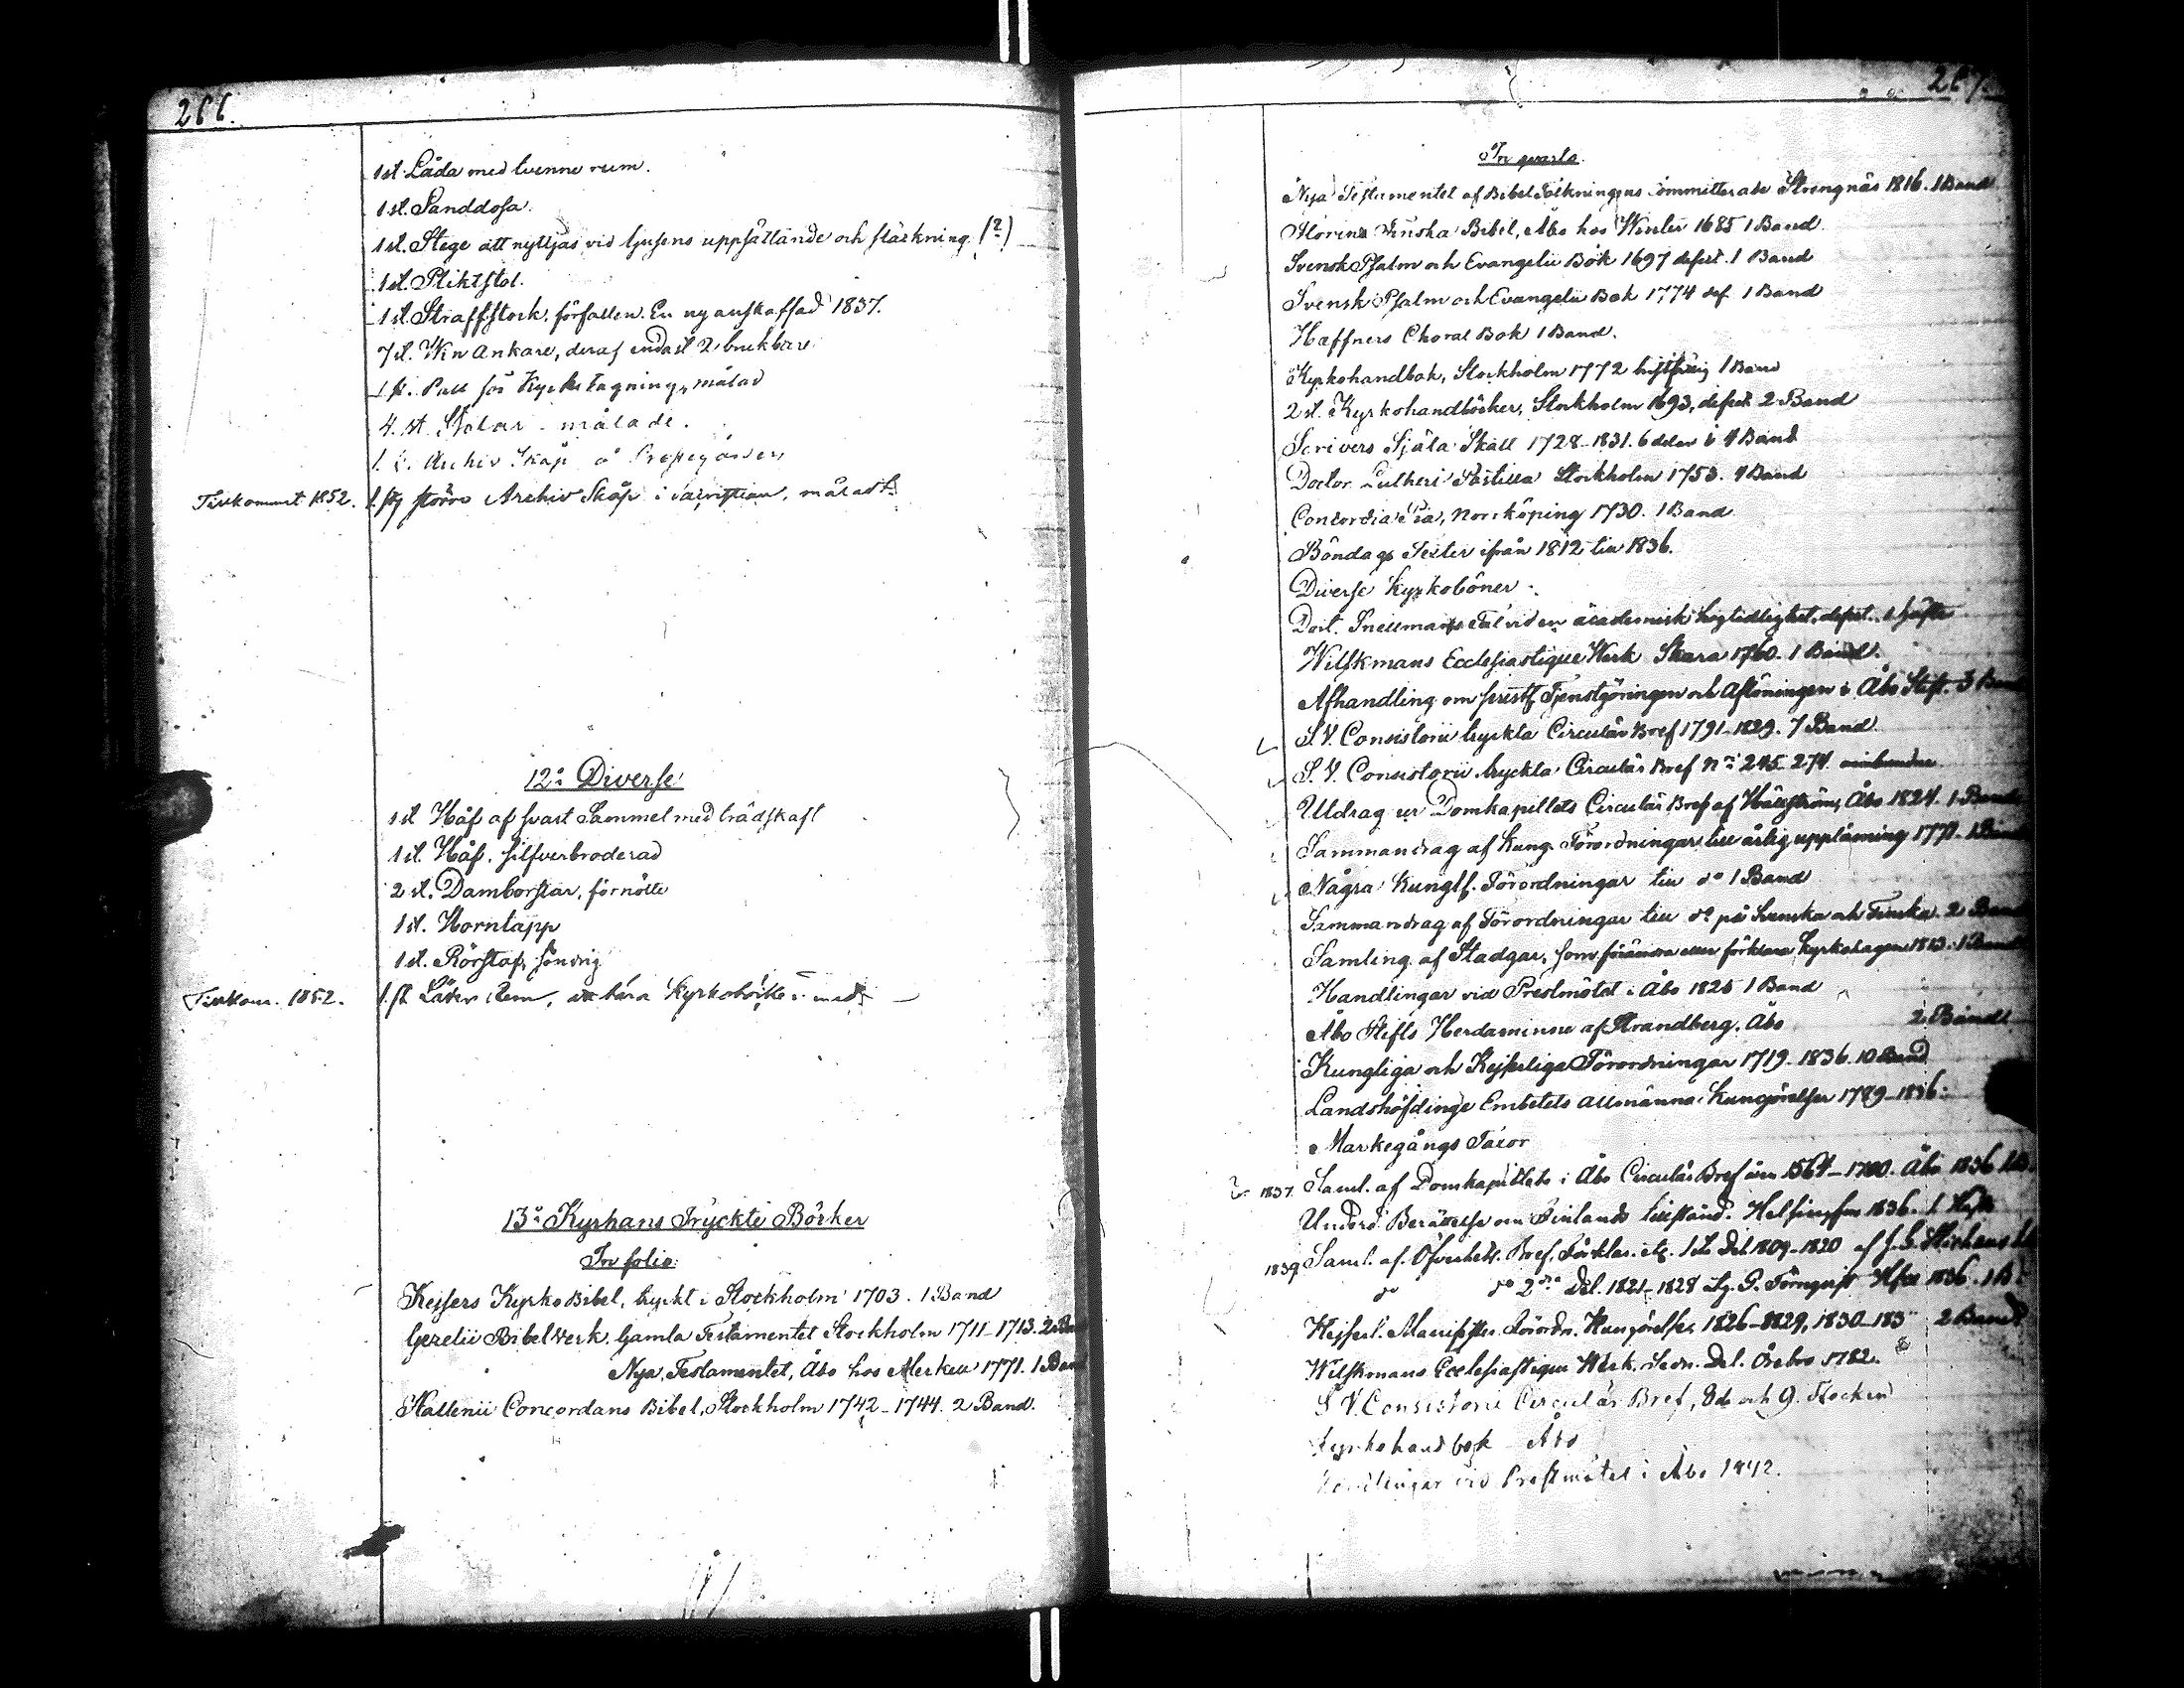 266.
1 st. Låda med tvenne rum.
1 st. Sanddosa.
1 st. Stege att nyttjas vid ljusens uppsättande och släckning. (?)
1 st. Pliktstol.
1 st. Straffstock, förfallen. En ny anskaffad 1837.
7 st. Vin Ankare, deraf endast 2 brukbare
1 st. Pall för Kyrktagning, målad
4. st. Stolar - målade.
1. Archiv Skåp å
Tillkommit 1852. 1. st större Archiv Skåp i Sacristian, måladt.
12:o Diverse:
1 st. Håf af svart Sammet med trädskaft
1 st. Håf, silfverbroderad
2 st. Damborstar, förnötte
1 st. Horntapp
1 st. Rörstaf, söndrig
Tillkom. 1852. 1. st. Läder Rem, att bära Kyrkoböcker med
13:o Kyrkans Tryckte Böcker
In folio:
Keysers Kyrko Bibel, tryckt i Stockholm 1703. 1 Band
Gezelii Bibelverk. Gamla Testamentet Stockholm 1711-1713. 2 Band
Nya Testamentet, Åbo hos Merkell 1771. 1 Band
Hallenii Concordans Bibel, Stockholm 1742-1744. 2 Band.
267.
In quarto.
Nya Testamentet af Bibel Tolkningens Committerade Strengnäs 1816. 1 Band
Florins Finska Bibel, Åbo hos Winter 1685 1 Band
Svensk Psalm och Evangelii Bok 1697 defect. 1 Band
Svensk Psalm och Evangelii Bok 1774 def. 1 Band
Hæffners Choral Bok 1 Band.
Kyrkohandbok, Stockholm 1772 1 Band
2 st. Kyrkohandböcker, Stockholm 1693, defect 2 Band
Scrivers Själa Skatt 1728-1831. 6 delar i 4 Band
Doctor Lutheri Postilla Stockholm 1753. 1 Band
Concordia Pia, Norrköping 1730. 1 Band
Böndags Texter ifrån 1812 till 1836.
Diverse Kyrkoböner
Doct. Snellmans Tal vid en academisk högtidlighet, defect. 1 häfte
Wilskmans Ecclesiastique Werk Skara 1760. 1 Band.
Afhandling om prestl. Tjenstgöringen och Aflöningen i Åbo Stift. 3 Band
S. V. Consistorii tryckta Circulär Bref 1791-1829. 7 Band
S. V. Consistorii tryckta Circulär Bref N:o 245-274. oinbundne
Utdrag ur Domkapitlets Circulär Bref af Hällström, Åbo 1824. 1 Band
Sammandrag af Kung. Förordningar till årlig uppläsning 1779. 1 Band
Några Kungl. Förordningar till do 1 Band
Sammandrag af Förordningar till do på Svenska och Finska. 2 Band
Samling af Stadgar, som förändra eller förklara Kyrkolagen 1813. 1 Band
Handlingar vid Prestmötet i Åbo 1825 1 Band
Åbo Stifts Herdaminne af Strandberg. Åbo 2 Band.
Kungliga och Kejserliga Förordningar 1719-1836. 10 Band
Landshöfdinge Embetets allmänna Kungörelser 1789-1836.
Markegångs Taxor
1837. Saml. af Domkapitlets i Åbo Circulär Bref åren 1564-1700. Åbo 1836
Underd. Berättelse om Finlands tillstånd. Helsingfors 1836. 1 Häfte
1839 Saml. af Öfverhets Bref, Förklar. etc. 1sta Del 1809-1820 af
do do 2dra Del. 1821-1828 G. Törnqvist Hfors 1836. 1 B.
Kejserl. Manifester, Förordn. Kungörelser 1826-1829, 1830-183 2 Band
Wilskmans Ecclesiastique Werk, Sedn. Del. Örebro 1782.
S. V. Consistorii Circulär Bref, 8de och 9. Flocken
Kyrkohandbok Åbo
Handlingar vid Prestmötet i Åbo 1842.